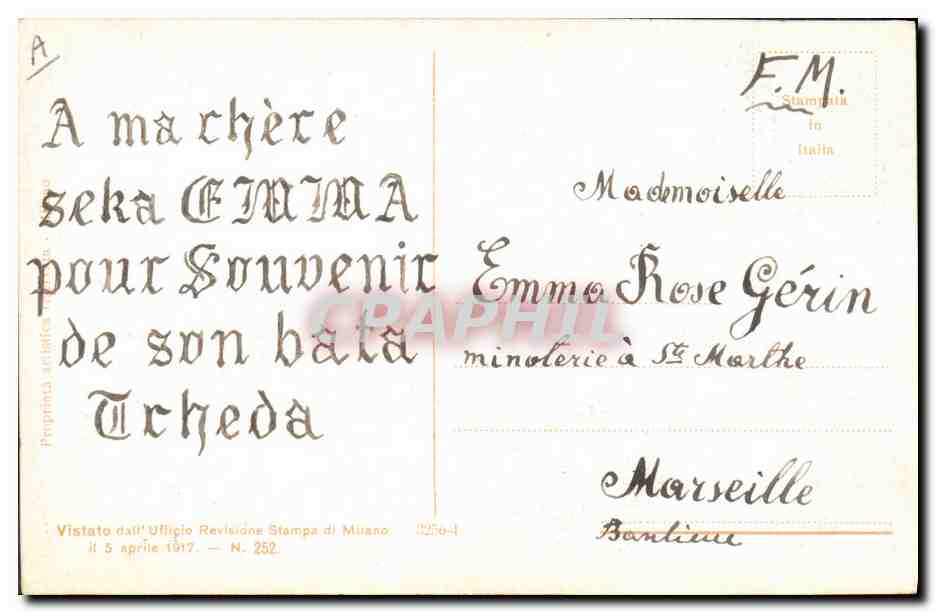 A
A ma chère
seka EMMA
pour Souvenir
de son bata
Tcheda
Vistato dall'Ufficio Revisione Stampa di Milano
il 5 aprile 1917. — N. 252.
3256-4
Proprietà artistica
F.M.
Stampata
in
Italia
Mademoiselle
Emma Rose Gérin
minoterie à Ste Marthe
Marseille
Banlieue
CRAPHIL